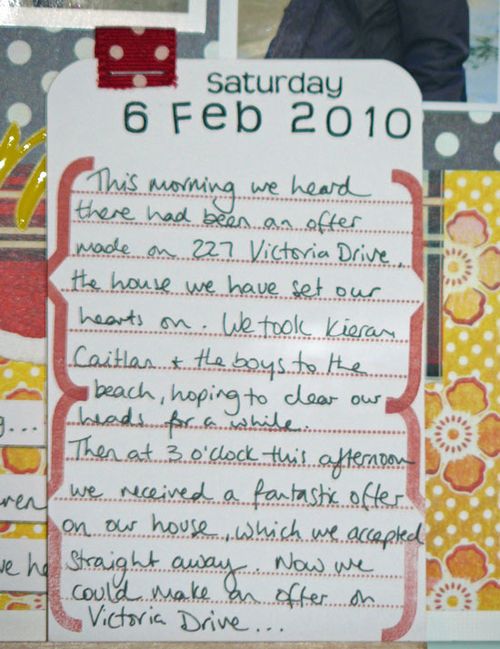 Saturday
6 Feb 2010
This morning we heard
there had been an offer
made on 227 Victoria Drive,
the house we have set our
hearts on. We took Kieran,
Caitlan + the boys to the
beach, hoping to clear our
heads for a while.
Then at 3 o'clock this afternoon
we received a fantastic offer
on our house, which we accepted
straight away. Now we
could make an offer on
Victoria Drive...